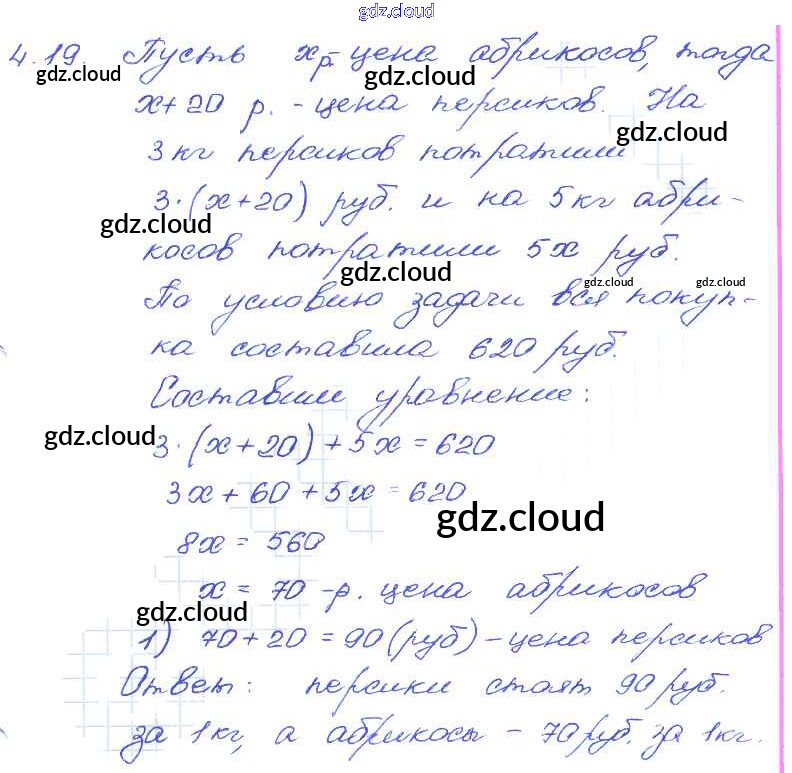 gdz.cloud
4.19. Пусть x р. - цена абрикосов, тогда
gdz.cloud gdz.cloud
x+20 р. - цена персиков. На
gdz.cloud
3 кг персиков потратили
3·(x+20) руб. и на 5 кг абри-
gdz.cloud
косов потратили 5x руб.
gdz.cloud gdz.cloud gdz.cloud
По условию задачи вся покуп-
ка составила 620 руб.
Составим уравнение:
gdz.cloud
3·(x+20)+5x=620
3x+60+5x=620
gdz.cloud
8x = 560
x = 70 -р. цена абрикосов
gdz.cloud
1) 70+20=90(руб)-цена персиков
Ответ: персики стоят 90 руб.
за 1 кг, а абрикосы - 70 руб. за 1 кг.